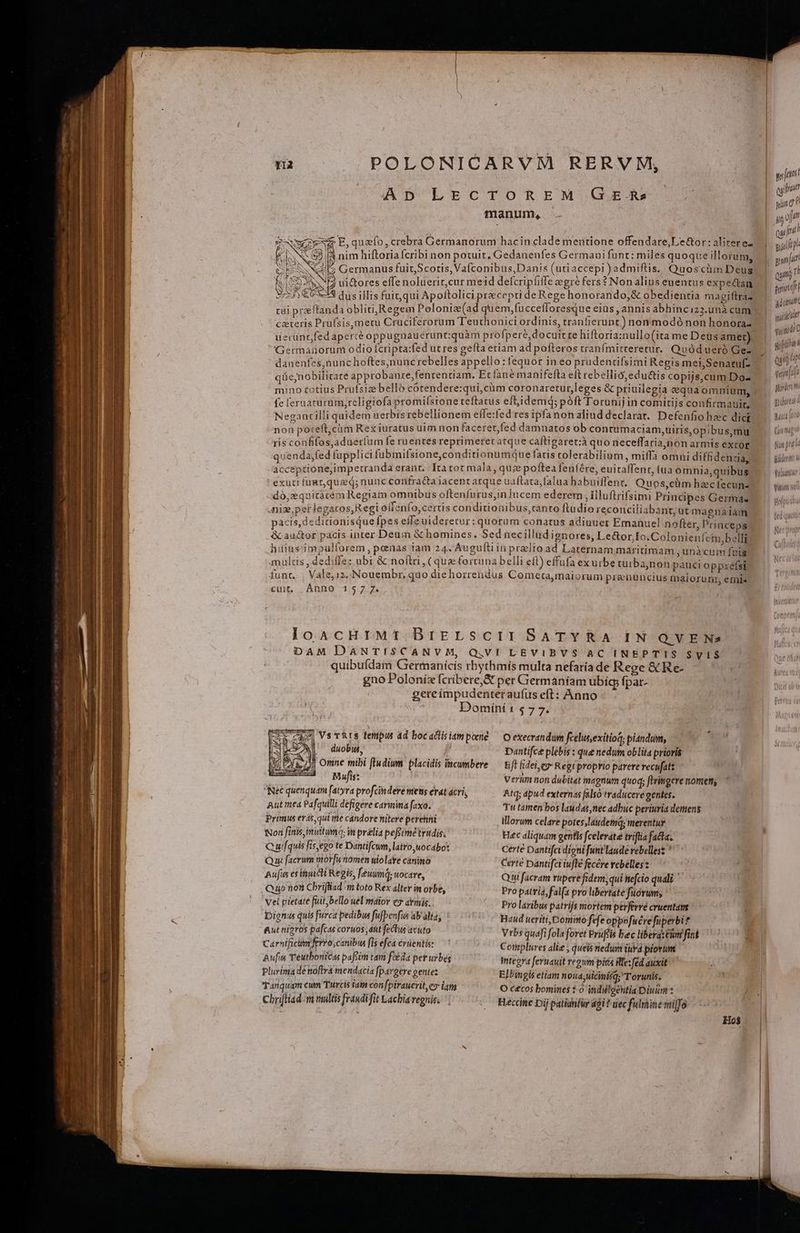 112 POLONICARVM RERVM,
AD LECTOREM GER-
manum,
E, quæso, crebra Germanorum hac in clade mentione offendare, Lector: aliter e-
nim historia scribi non potuit. Gedanenses Germani sunt: miles quoque illorum,
Germanus fuit, Scotis, Vasconibus, Danis (uti accepi) admistis. Quos cùm Deus
uictores esse noluerit, cur me id descripsisse ægrè fers? Non alius euentus expectan
dus illis fuit, qui Apostolici præcepti de Rege honorando, & obedientia magistra-
tui præstanda obliti, Regem Poloniæ (ad quem, successoresque eius, annis abhinc 123. unà cum
cæteris Prussis, metu Cruciferorum Teuthonici ordinis, transierunt) non modò non honora-
uerunt, sed apertè oppugnauerunt: quàm prosperè, docuit te historia: nullo (ita me Deus amet)
Germanorum odio scripta: sed ut res gesta etiam ad posteros transmitteretur. Quòd uerò Ge-
danenses, nunc hostes, nunc rebelles appello: sequor in eo prudentissimi Regis mei, Senatus-
que, nobilitate approbante, sententiam. Et sanè manifesta est rebellio, eductis copijs, cum Do-
mino totius Prussiæ bello cōtendere: qui, cùm coronaretur, leges & priuilegia æqua omnium,
se seruaturum, religiosa promissione testatus est, idemq; pòst Torunij in comitijs confirmauit.
Negant illi quidem uerbis rebellionem esse: sed res ipsa non aliud declarat. Defensio hæc dici
non potest, cùm Rex iuratus uim non faceret, sed damnatos ob contumaciam, uiris, opibus, mu
ris confisos, aduersum se ruentes reprimeret atque castigaret: à quo necessaria, non armis extor
quenda, sed supplici submissione, conditionumque satis tolerabilium, missa omni diffidentia,
acceptione, impetranda erant. Ita tot mala, quæ postea sensére, euitassent, sua omnia, quibus
exuti sunt, quæq; nunc confracta iacent atque uastata, salua habuissent. Quos, cùm hæc secun-
dò, æquitatem Regiam omnibus ostensurus, in lucem ederem, Illustrissimi Principes Germa-
niæ, per legatos, Regi offenso, certis conditionibus, tanto studio reconciliabant, ut magna iam
pacis, deditionisque spes esse uideretur: quorum conatus adiuuet Emanuel noster, Princeps
& auctor pacis inter Deum & homines. Sed nec illud ignores, Lector, Io. Coloniensem, belli
huius impulsorem, pœnas iam 24. Augusti in prælio ad Laternam maritimam, unà cum suis
multis, dedisse: ubi & nostri, (quæ fortuna belli est) effusa ex urbe turba, non pauci oppressi
sunt. Vale, 12. Nouembr. quo die horrendus Cometa, maiorum prænuncius maiorum, emi-
cuit. Anno 1577.
IOACHIMI BIELSCII SATYRA IN QVEN-
DAM DANTISCANVM, QVI LEVIBVS AC INEPTIS SVIS
quibusdam Germanicis rhythmis multa nefaria de Rege & Re-
gno Poloniæ scribere, & per Germaniam ubiq; spar-
gere impudenter ausus est: Anno
Domini 1577.
Vstris tempus ad hoc actis iam pœnè
duobus,
Omne mihi studium placidis incumbere
Musis:
Nec quenquam satyra proscindere mens erat acri,
Aut mea Pasquilli defigere carmina saxo.
Primus eras, qui me candore nitere perenni
Non sinis, inuitumq; in prælia pessimè trudis.
Quisquis sis, ego te Dantiscum, latro, uocabo:
Qui sacrum morsu nomen uiolare canino
Ausus es inuicti Regis, sæuumq; uocare,
Quo non Christiad~m toto Rex alter in orbe,
Vel pietate fuit, bello uel maior & armis.
Dignus quis furca pedibus suspensus ab alta,
Aut nigros pascas coruos, aut sectus acuto
Carnificùm ferro, canibus sis esca cruentis:
Ausus Teuthonicas passim tam fœda per urbes
Plurima de nostra mendacia spargere gente:
Tanquam cum Turcis iam conspirauerit, & iam
Christiad~m multis fraudi sit Lachia regnis.
O execrandum scelus, exitioq; piandum,
Dantiscæ plebis: quæ nedum oblita prioris
Est fidei, & Regi proprio parere recusat:
Verùm non dubitat magnum quoq; stringere nomen,
Atq; apud externas falsò traducere gentes.
Tu tamen hos laudas, nec adhuc periuria demens
Illorum celare potes, laudemq; merentur
Hæc aliquam gentis sceleratæ tristia facta.
Certè Dantisci digni sunt laude rebelles:
Certè Dantisci iustè fecêre rebelles:
Qui sacram rupere fidem, qui nescio quali
Pro patria, falsa pro libertate suorum,
Pro laribus patrijs mortem perferre cruentam
Haud ueriti, Domino sese opposuêre superbi?
Vrbs quasi sola foret Prussis hæc libera: cùm sint
Complures aliæ, queis nedum iura piorum
Integra seruauit regum pius ille: sed auxit
Elbingis etiam noua, uicinisq; Torunis.
O cæcos homines: ô indulgentia Diuûm:
Heccine Dij patiantur agi? nec fulmine misso
Hos